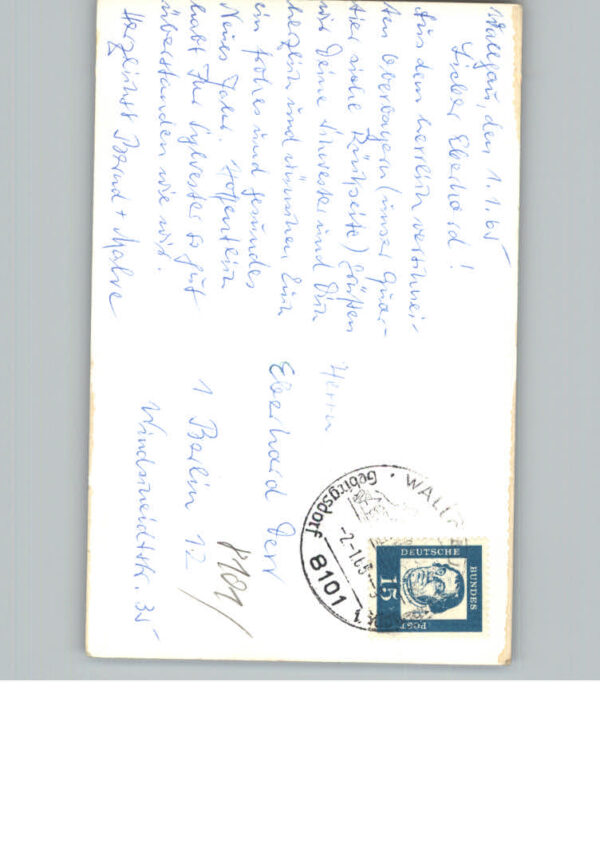 Wallgau, den 1.1.65
Lieber Eberhard!
Aus dem herrlich verschnei-
ten Oberbayern (unser Quar-
tier siehe Rückseite) grüßen
wir Deine Schwester und Dich
herzlich und wünschen Euch
ein frohes und gesundes
Neues Jahr. Hoffentlich
habt Ihr Sylvester so gut
überstanden wie wir.
Herzlichst Bernd +
Herrn
Eberhard Derr
1 Berlin 12
Windscheidtstr. 35
8101/
8101 WALLG
Gebirgsdorf
-2-1.65-
DEUTSCHE
BUNDES
POST
15